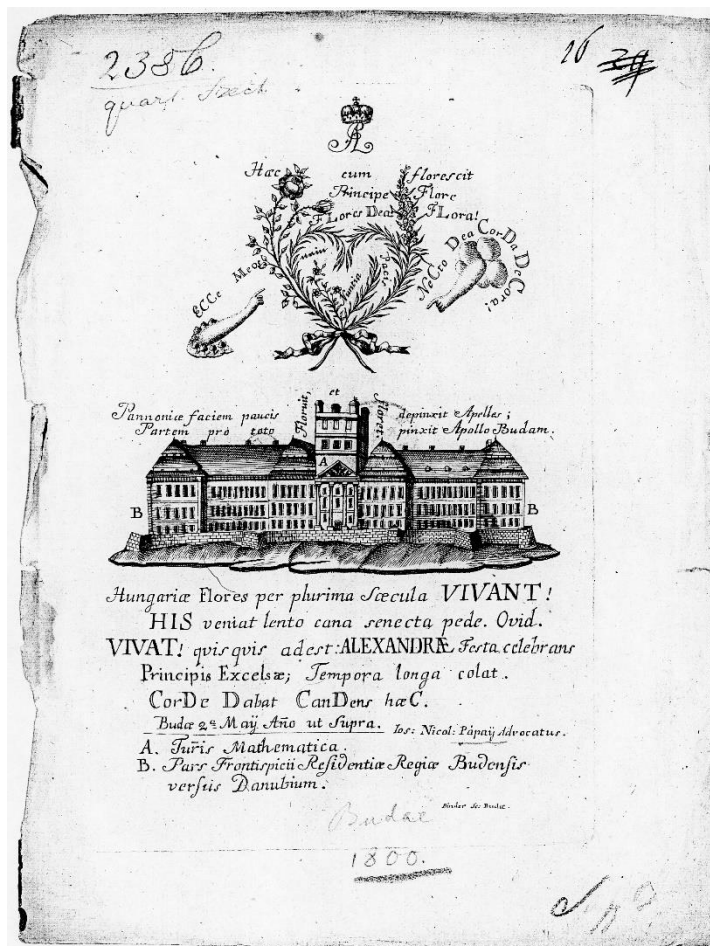 2386.
26 29
quart. Sect.
AP
Hæc cum florescit
Principe Flore
FLores Dea! FLora!
ECCe Meos
unio
Nuntia Pacis
NeCto Dea CorDa DeCora!
Floruit, et floret,
Pannoniæ faciem paucis depinxit Apelles;
Partem pro toto pinxit Apollo Budam.
A
B B
Hungariæ Flores per plurima Sæcula VIVANT!
HIS veniat lento cana senecta pede. Ovid.
VIVAT! quisquis adest: ALEXANDRÆ Festa celebrans
Principis Excelsæ; Tempora longa colat.
CorDe Dabat CanDens hæC.
Budæ 2ª Maÿ Año ut Supra. Ios: Nicol: Pápaÿ Advocatus.
A. Turris Mathematica.
B. Pars Frontispicii Residentiæ Regiæ Budensis
versus Danubium.
Binder Sc: Budæ.
Budae
1800.